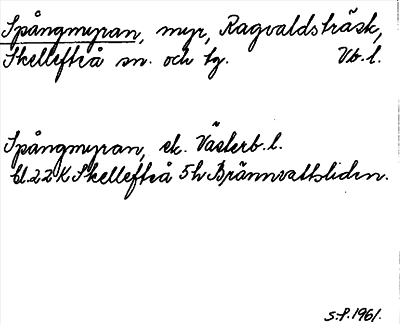 Spångmyran, myr, Ragvaldsträsk,
Skellefteå sn. och tg. Vb.l.
Spångmyran, ek. Västerb.l.
bl.22K Skellefteå 5h Brännvattsliden.
S.P. 1961.